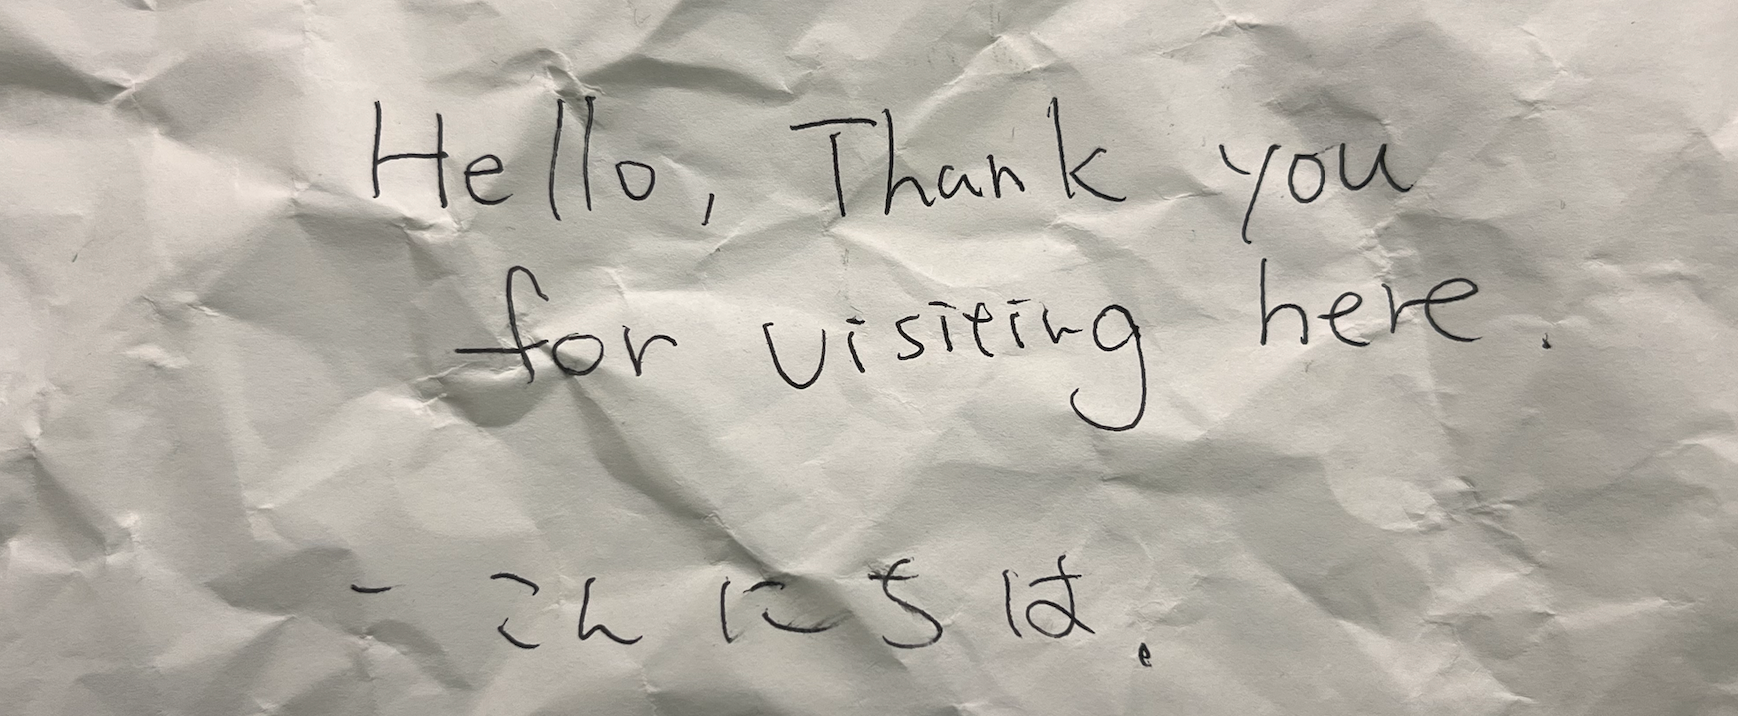 Hello, Thank you
for visiting here.
- こんにちは.